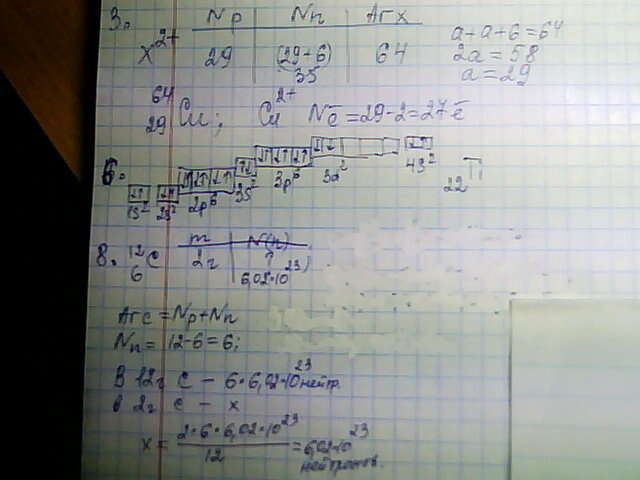 3. Np Nn Ar x
X²⁺ 29 (29+6) 64
35
a+a+6=64
2a=58
a=29
⁶⁴₂₉Cu; Cu²⁺ Nē=29-2=27ē
6. 1s² 2s² 2p⁶ 3s² 3p⁶ 3d² 4s² ₂₂Ti
8. ¹²₆C m N(n)
2г ?
6,02·10²³)
Ar c = Np+Nn
Nn= 12-6=6;
В 12г С - 6·6,02·10²³ нейтр.
в 2г с - x
x= 2·6·6,02·10²³ / 12 = 6,02·10²³
нейтронов.